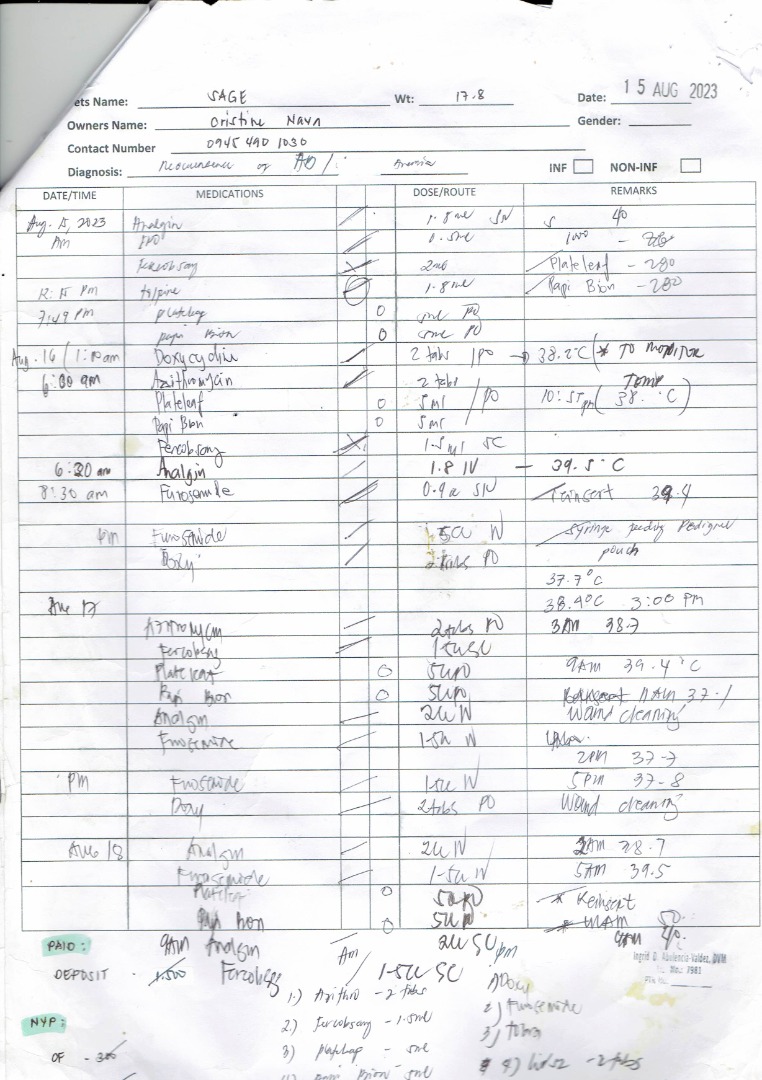 ets Name: SAGE Wt: 17.8 Date: 15 AUG 2023
Owners Name: Cristine Nava Gender:
Contact Number 0945 490 1030
Diagnosis: Reoccurrence of / Anemia INF NON-INF
DATE/TIME MEDICATIONS DOSE/ROUTE REMARKS
Aug. 15, 2023 Analgin 1.8 ml 40
Am 0.5ml 1000
Fercobsang 2ml Plateleaf - 280
12:15 PM 1.8 ml Papi Bion - 280
7:49 PM plateleaf 0 5ml PO
papi Bion 0 5ml PO
Aug. 16 / 1:10am Doxycycline 2 tabs PO → 38.2°C (* TO MONITOR
6:30 am Azithromycin 2 tabs Temp
Plateleaf 0 5ml / PO 10:57pm ( 38. °C )
Papi Bion 0 5ml
Fercobsang 1.5ml SC
6:30 am Analgin 1.8 IV - 39.5°C
8:30 am Furosemide Reinsert 39.4
pm Furosemide 1.5cc IV Syringe feeding Pedigree
Doxy 2 tabs PO pouch
37.7°C
Aug 17 38.4°C 3:00 PM
Azithromycin 2 tabs PO 3AM 38.7
Fercobsang 1.5cc SC
Plateleaf 0 5cc PO 9AM 39.4°C
Papi Bion 0 5cc PO Reinsert 11AM 37.1
Analgin 2cc IV Wound cleaning
Furosemide 1.5cc IV
2PM 37.7
PM Furosemide 1.5cc IV 5PM 37.8
Doxy 2 tabs PO Wound cleaning
Aug 18 Analgin 2cc IV 2AM 38.7
Furosemide 1.5cc IV 5AM 39.5
Platelet 0 5cc PO * Reinsert
Papi Bion 0 5cc PO
PAID: 9AM Analgin Am 2cc SC pm
Ingrid D. Abelencia-Valdez, DVM
DEPOSIT - 1,500 Fercobsang 1.5cc SC Doxy
1.) Azithro - 2 tabs 2) Furosemide
NYP: 2.) Fercobsang - 1.5ml 3) tobra
OF - 300 3) platelap - 5ml 4) - 2 tabs
papi Bion 5ml